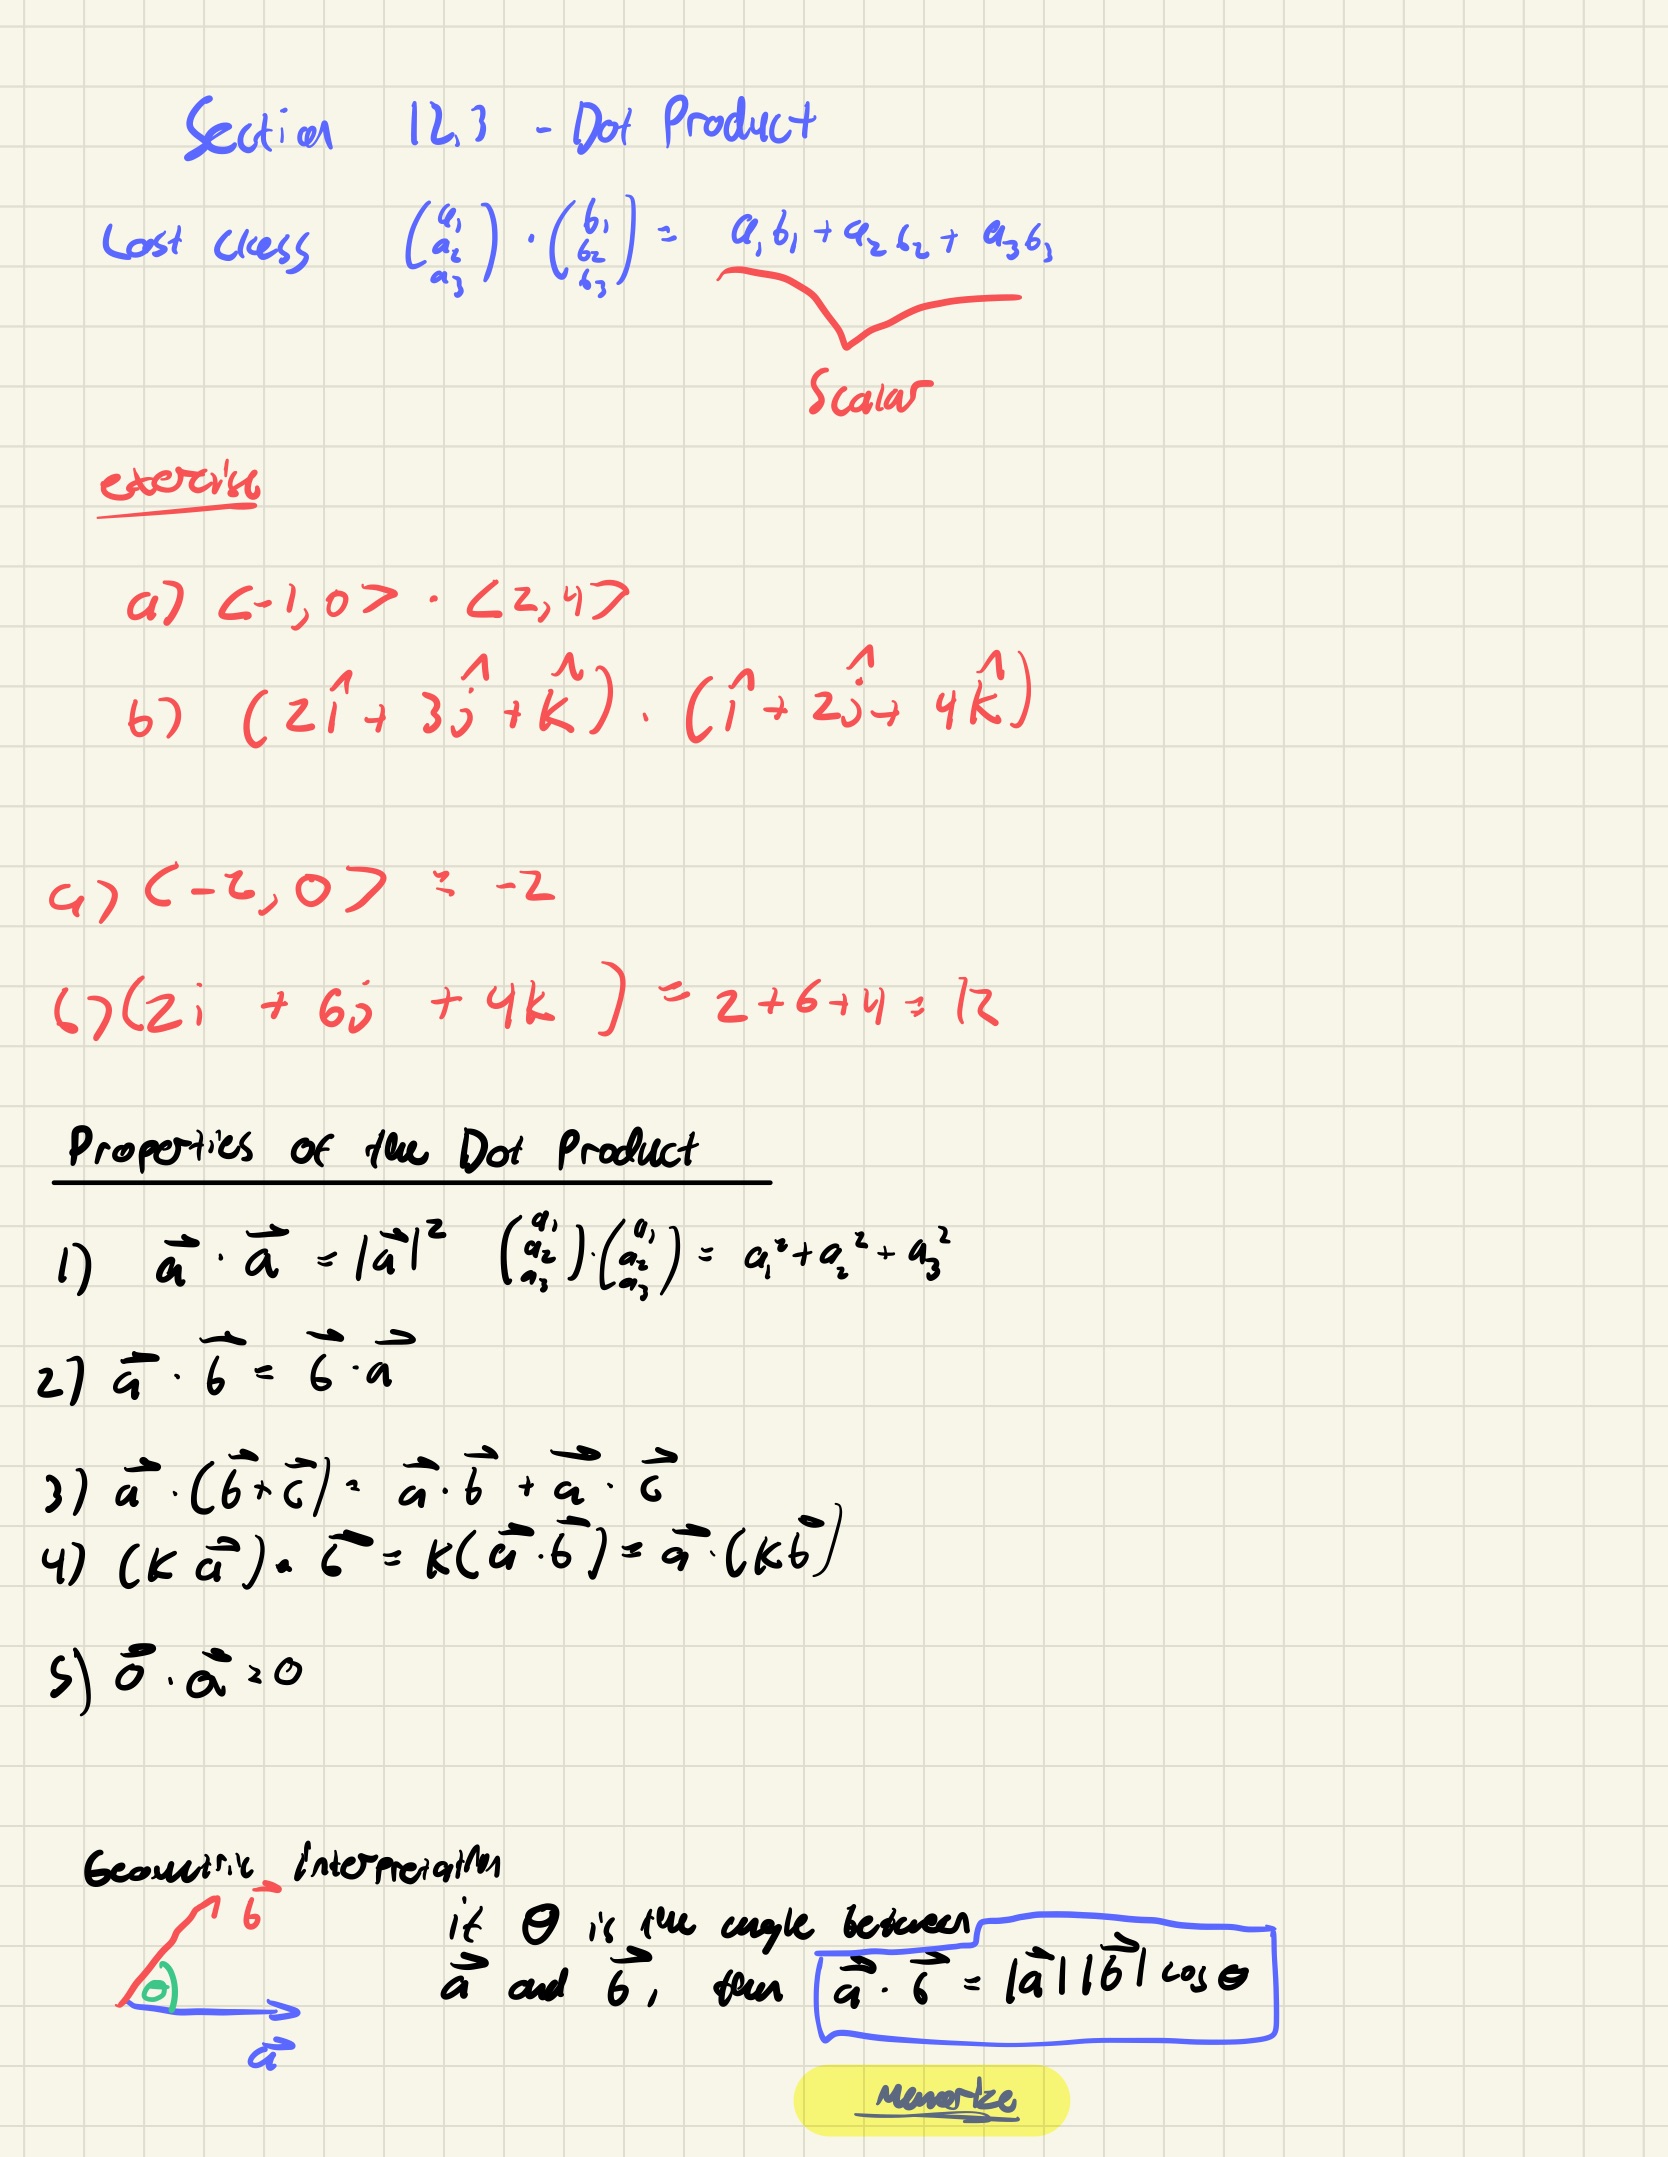 Section 12.3 - Dot Product
Last class (a₁ a₂ a₃) · (b₁ b₂ b₃) = a₁b₁ + a₂b₂ + a₃b₃
Scalar
exercise
a) <-1, 0> · <2, 4>
b) (2î + 3ĵ + k̂) · (î + 2ĵ + 4k̂)
a) <-2, 0> = -2
b) (2i + 6j + 4k) = 2 + 6 + 4 = 12
Properties of the Dot Product
1) a⃗ · a⃗ = |a⃗|² (a₁ a₂ a₃) · (a₁ a₂ a₃) = a₁² + a₂² + a₃²
2) a⃗ · b⃗ = b⃗ · a⃗
3) a⃗ · (b⃗ + c⃗) = a⃗ · b⃗ + a⃗ · c⃗
4) (K a⃗) · b⃗ = K(a⃗ · b⃗) = a⃗ · (K b⃗)
5) 0⃗ · a⃗ = 0
Geometric Interpretation
b⃗
θ
a⃗
if θ is the angle between
a⃗ and b⃗, then a⃗ · b⃗ = |a⃗| |b⃗| cos θ
Memorize